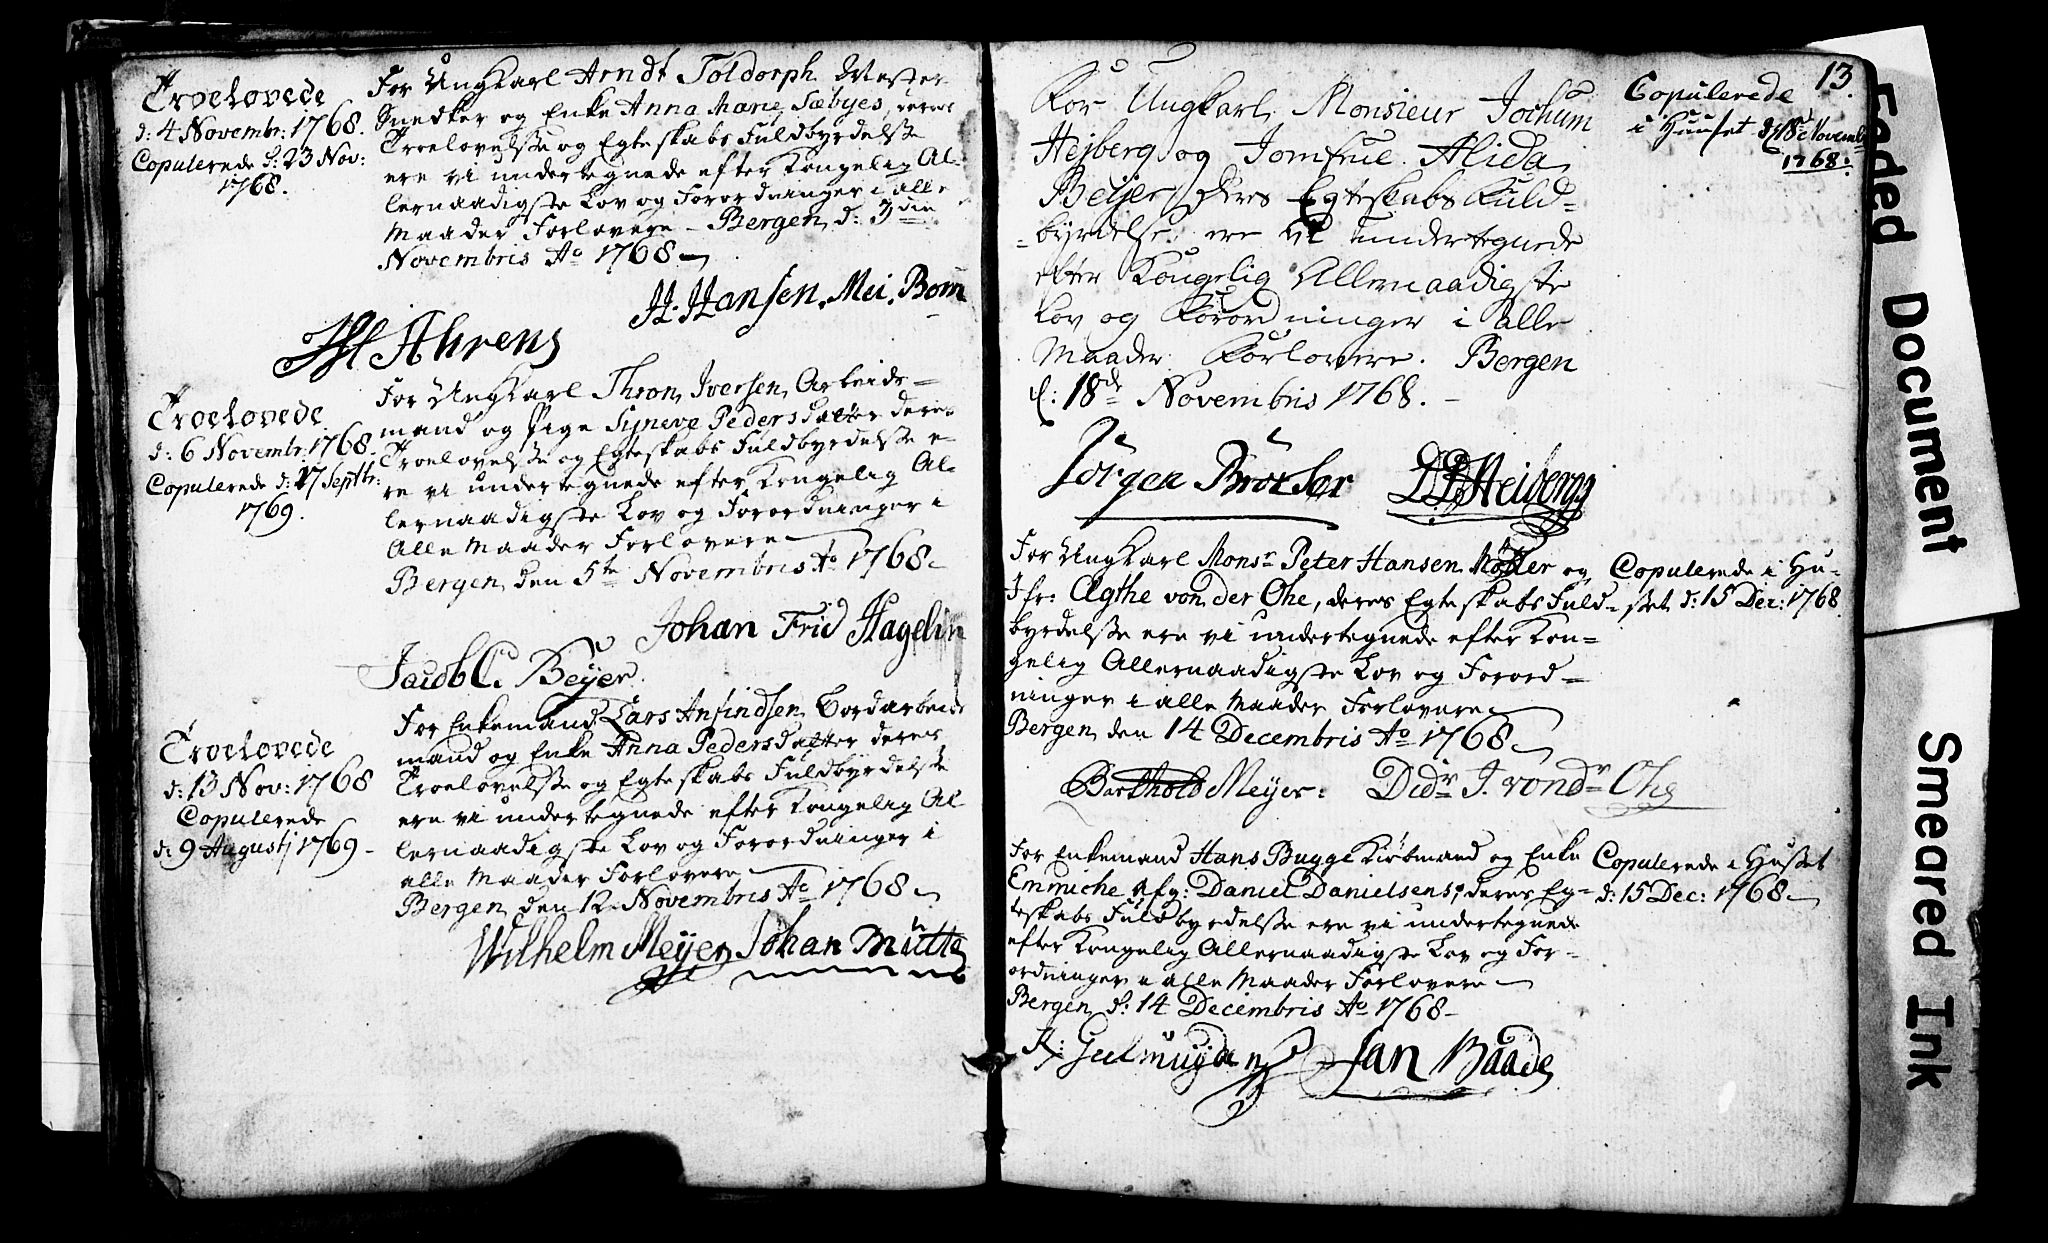 Troelovede
d: 4 Novembr: 1768.
Copulerede d: 23 Nov:
1768.
For Ungkarl Arndt Toldorph Mester
Snedker og Enke Anna Marie Sæbyes, deres
Troelovelse og Egteskabs Fuldbyrdelse
ere vi undertegnede efter Kongelig Al-
lernaadigste Lov og Forordninger i alle
Maader Forlovere - Bergen d: 3die
Novembris Ao 1768
H. Hansen. Mei. Bom
Ahrens
Troelovede
d: 6 Novembr: 1768.
Copulerede d: 17 Septbr:
1769.
For Ungkarl Thron Iversen, Arbeids-
mand og Pige Synneve Pedersdatter deres
Troelovelse og Egteskabs Fuldbyrdelse e-
re vi undertegnede efter Kongelig Al-
lernaadigste Lov og Forordninger i
Alle Maader Forlovere
Bergen den 5te Novembris Ao 1768
Johan Frid Hagelin
Jacob C. Beyer
Troelovede
d: 13 Nov: 1768
Copulerede
d: 9 Augustj 1769
For Enkemand Lars Anfindsen, Bordarbeids
mand og Enke Anna Pedersdatter deres
Troelovelse og Egteskabs Fuldbyrdelse
ere vi undertegnede efter Kongelig Al
lernaadigste Lov og Forordninger i
alle Maader Forlovere
Bergen den 12 Novembris Ao 1768
Wilhelm Meyer Johan Mütte
13.
For Ungkarl Monsieur Jochum
Hejberg og Jomfrue Alida
Beyer, deres Egteskabs Fuld-
-byrdelse, ere vi undertegnede
efter Kongelig Allernaadigste
Lov og Forordninger i alle
Maader Forlovere. Bergen
d: 18de Novembris 1768.
Copulerede
i Huuset d: 18de Novemb
1768.
Jörgen Brörser D D Heiberg
For Ungkarl Monsr Peter Hansen Möller og
Jfr: Ægthe von der Ohe, deres Egteskabs Fuld-
byrdelse ere vi undertegnede efter Kon-
gelig Allernaadigste Lov og Forord-
ninger i alle Maader Forlovere
Bergen den 14 Decembris Ao 1768
Copulerede i Hu-
set d: 15 Dec: 1768
Barthold Meyer: Didr J. von dr Ohe
For Enkemand Hans Bugge Kiöbmand og Enke
Emmiche Afg: Daniel Danielsens, deres Eg-
teskabs Fuldbyrdelse ere vi undertegnede
efter Kongelig Allernaadigste Lov og For-
ordninger i alle Maader Forlovere
Bergen d: 14 Decembris Ao 1768
Copulerede i Huset
d: 15 Dec: 1768
Geelmuyden Jan Baade
Faded Document
Smeared Ink